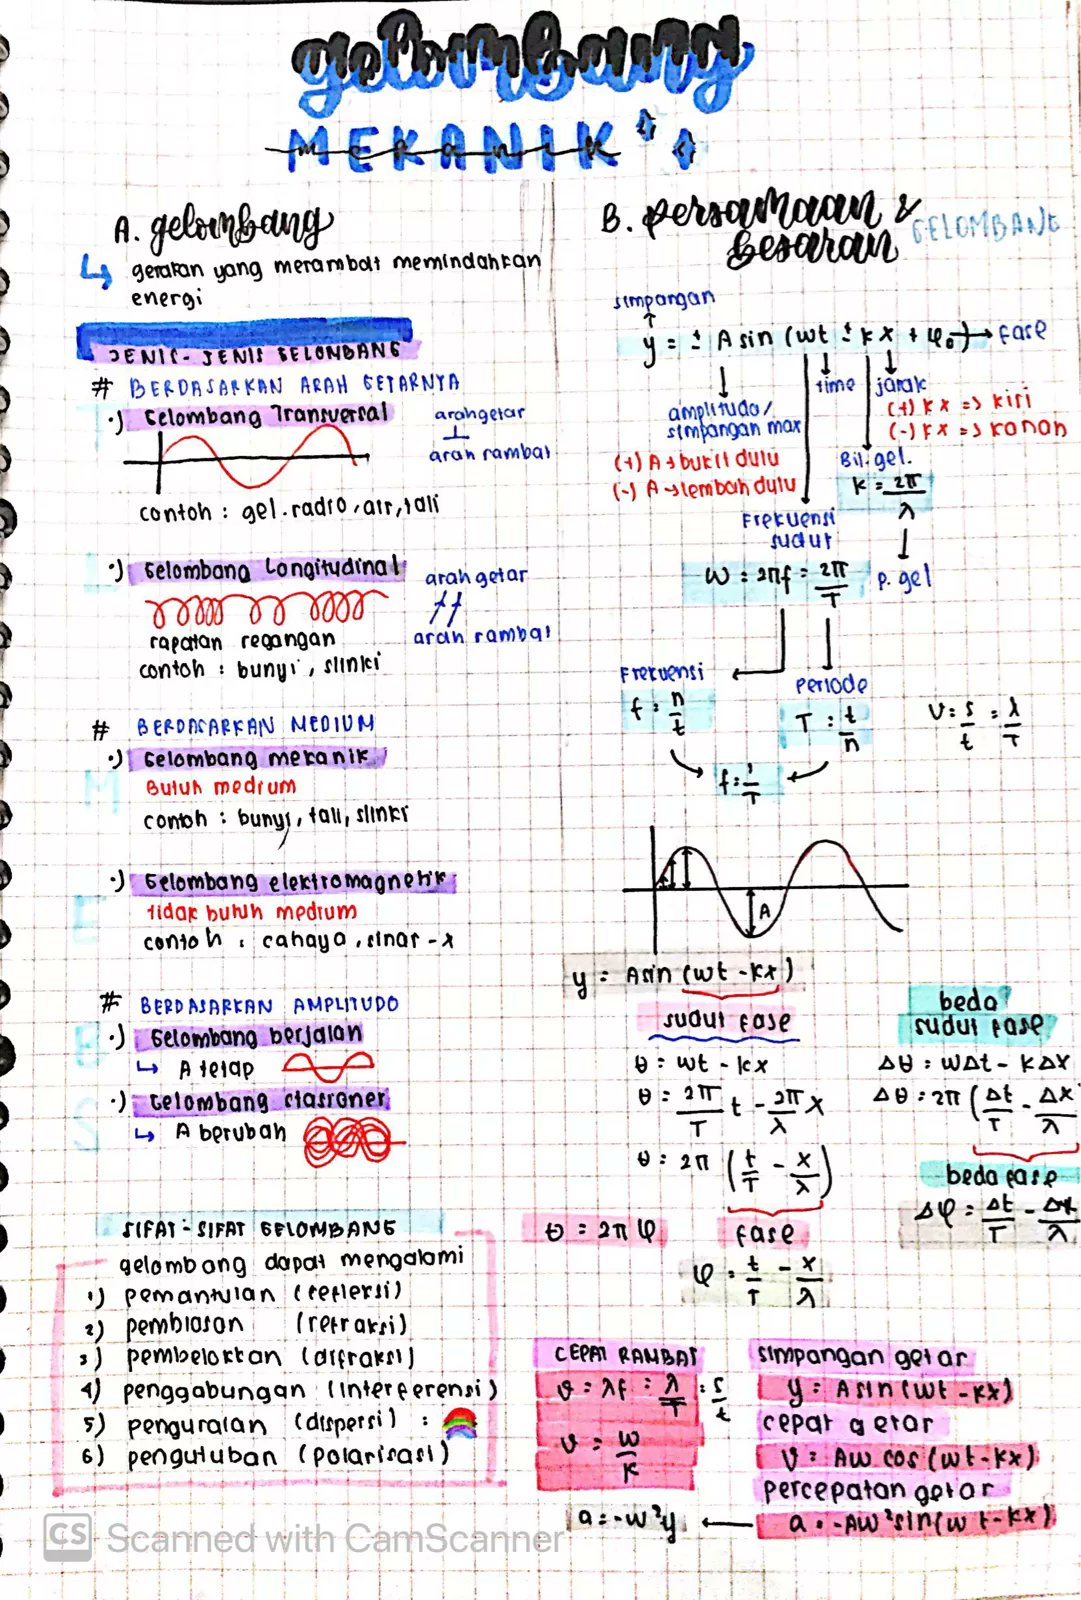 gelombang
MEKANIK
A. gelombang
↳ gerakan yang merambat memindahkan
energi
JENIS-JENIS GELOMBANG
# BERDASARKAN ARAH GETARNYA
•) Gelombang Transversal
arah getar
⊥
arah rambat
contoh : gel. radio, air, tali
•) Gelombang Longitudinal
arah getar
arah rambat
rapatan regangan
contoh : bunyi, slinki
# BERDASARKAN MEDIUM
•) Gelombang mekanik
Butuh medium
contoh : bunyi, tali, slinki
•) Gelombang elektromagnetik
Tidak butuh medium
contoh : cahaya, sinar-x
# BERDASARKAN AMPLITUDO
•) Gelombang berjalan
↳ A tetap
•) Gelombang stasioner
↳ A berubah
SIFAT-SIFAT GELOMBANG
gelombang dapat mengalami
1) pemantulan (refleksi)
2) pembiasan (refraksi)
3) pembelokkan (difraksi)
4) penggabungan (interferensi)
5) penguraian (dispersi) :
6) pengutuban (polarisasi)
B. persamaan &
besaran GELOMBANG
simpangan
y = ± A sin (ωt ± kx + φ₀) → fase
time
jarak
(+) kx => kiri
(-) kx => kanan
amplitudo/
simpangan max
(+) A → bukit dulu
(-) A → lembah dulu
Bil. gel.
k = 2π/λ
Frekuensi
sudut
ω = 2πf = 2π/T
p. gel
Frekuensi
f = n/t
Periode
T = t/n
V = s/t = λ/T
f = 1/T
A
y = A sin (ωt - kx)
sudut fase
θ = ωt - kx
θ = 2π/T t - 2π/λ x
θ = 2π (t/T - x/λ)
θ = 2πφ
fase
φ = t/T - x/λ
beda
sudut fase
Δθ = ωΔt - kΔx
Δθ = 2π (Δt/T - Δx/λ)
beda fase
Δφ = Δt/T - Δx/λ
CEPAT RAMBAT
v = λf = λ/T = s/t
v = ω/k
simpangan getar
y = A sin (ωt - kx)
cepat getar
v = Aω cos (ωt - kx)
percepatan getar
a = -Aω² sin (ωt - kx)
a = -ω²y
CS Scanned with CamScanner